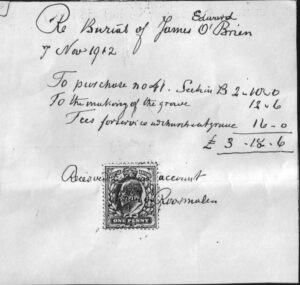 Re Burial of James Edward O'Brien
7 Nov 1912
To purchase no 41. Section B 2-10-0
To the making of the grave 12-6
Fees for service in church and grave 16-0
£ 3-18-6
Received account
Roosmalen
ONE PENNY